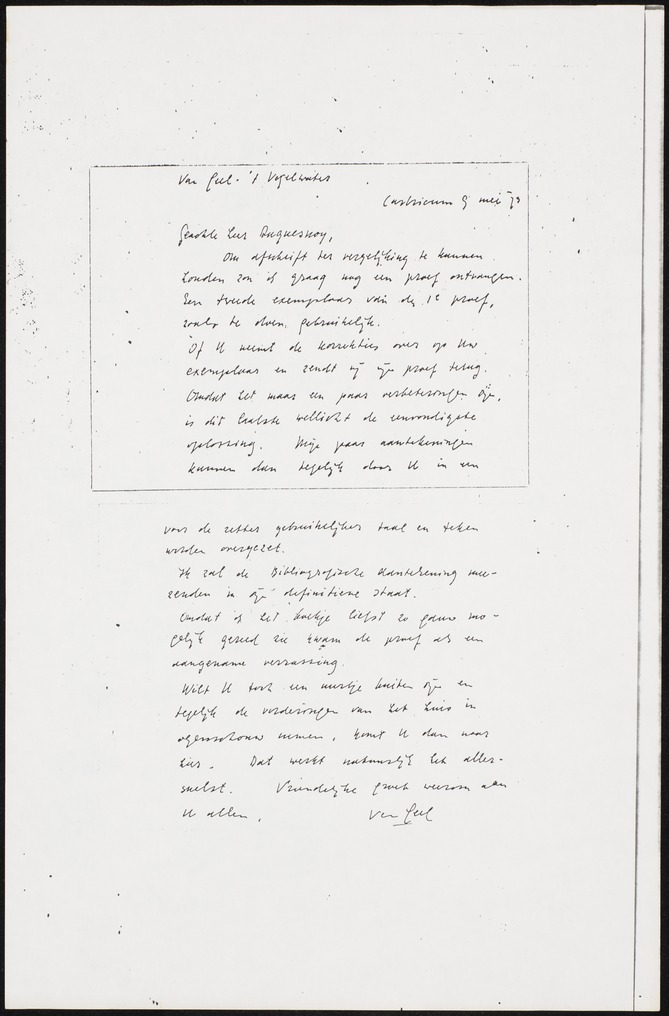 Van Geel - 't Vogelwater
Castricum 9 mei '73
Geachte Heer Duquesnoy,
Om afschrift ter vergelijking te kunnen
houden zou ik graag nog een proef ontvangen.
Een tweede exemplaar van de 1e proef,
zoals te doen gebruikelijk.
Óf U neemt de korrekties over op Uw
exemplaar en zendt mij mijn proef terug.
Omdat het maar een paar verbeteringen zijn,
is dit laatste wellicht de eenvoudigste
oplossing. Mijn paar aantekeningen
kunnen dan tegelijk door U in een
voor de zetter gebruikelijker taal en teken
worden overgezet.
Ik zal de Bibliografische Aantekening mee-
zenden in zijn definitieve staat.
Omdat ik het boekje liefst zo gauw mo-
gelijk gereed zie kwam de proef als een
aangename verrassing.
Wilt U toch een uurtje buiten zijn en
tegelijk de vorderingen van het huis in
ogenschouw nemen, komt U dan naar
hier. Dat werkt natuurlijk het aller-
snelst. Vriendelijke groet weerom aan
U allen,
Van Geel